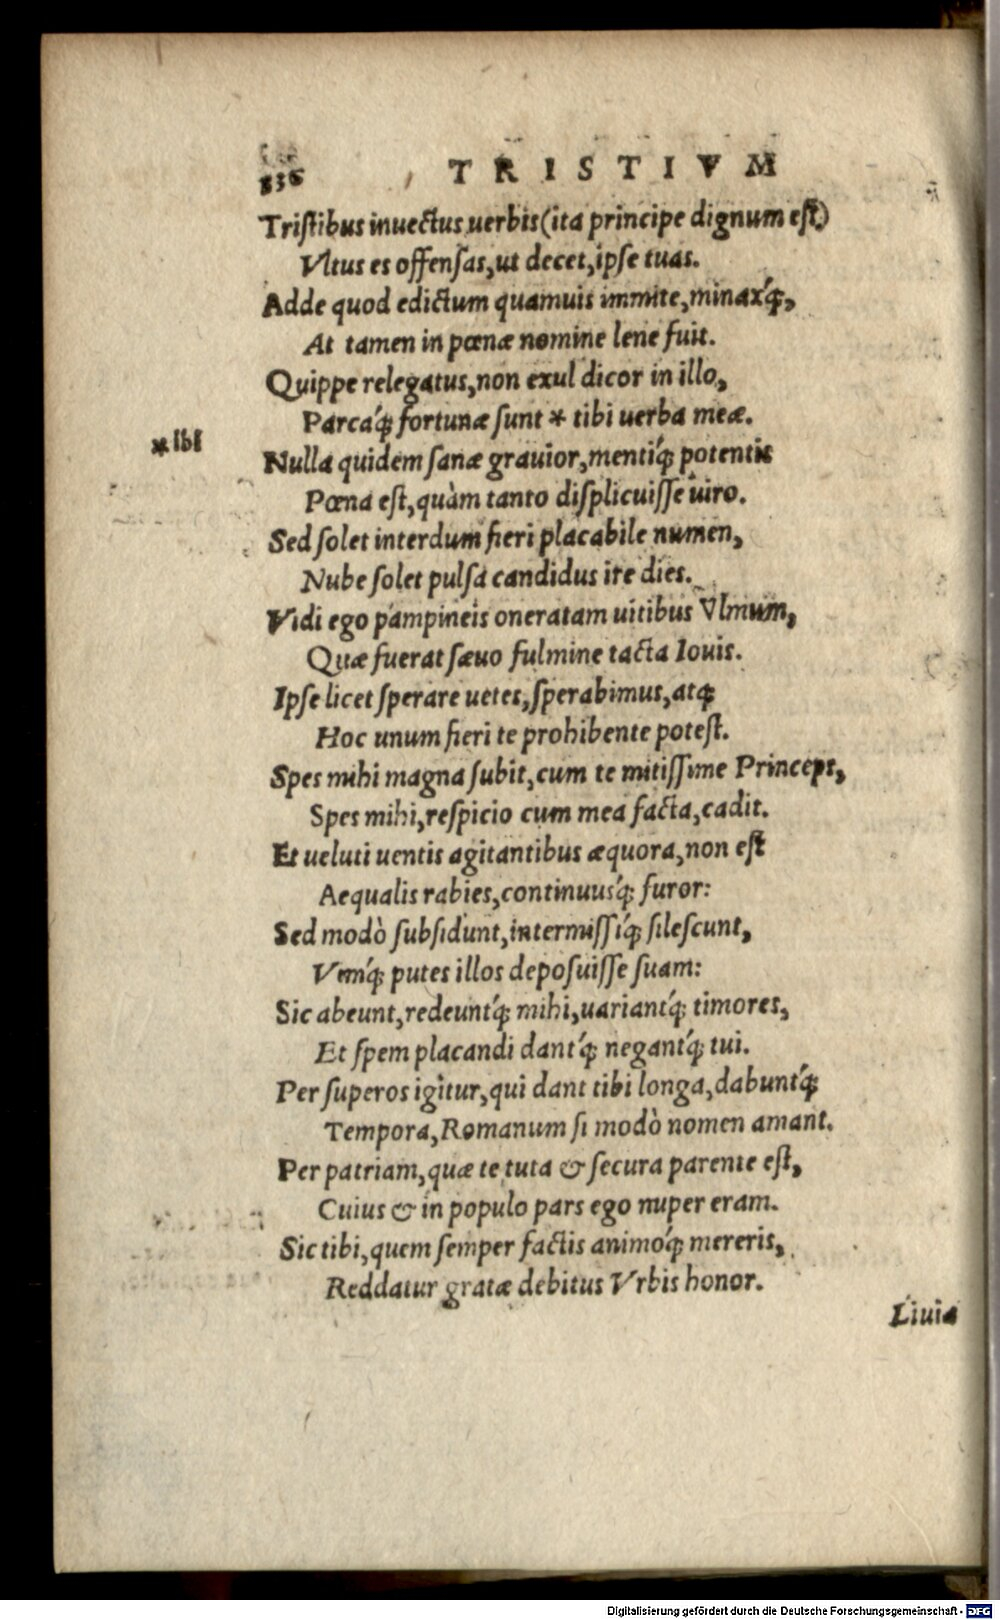 836
TRISTIVM
Tristibus inuectus uerbis (ita principe dignum est)
Vltus es offensas, ut decet, ipse tuas.
Adde quod edictum quamuis immite, minaxq́;,
At tamen in pœnæ nomine lene fuit.
Quippe relegatus, non exul dicor in illo,
Parcaq́; fortunæ sunt * tibi uerba meæ.
* Ibi
Nulla quidem sanæ grauior, mentiq́; potentis
Pœna est, quàm tanto displicuisse uiro.
Sed solet interdum fieri placabile numen,
Nube solet pulsa candidus ire dies.
Vidi ego pampineis oneratam uitibus Vlmum,
Quæ fuerat sæuo fulmine tacta Iouis.
Ipse licet sperare uetes, sperabimus, atq;
Hoc unum fieri te prohibente potest.
Spes mihi magna subit, cum te mitissime Princeps,
Spes mihi, respicio cum mea facta, cadit.
Et ueluti uentis agitantibus æquora, non est
Aequalis rabies, continuusq́; furor:
Sed modò subsidunt, intermissiq́; silescunt,
Vimq́; putes illos deposuisse suam:
Sic abeunt, redeuntq́; mihi, uariantq́; timores,
Et spem placandi dantq́; negantq́; tui.
Per superos igitur, qui dant tibi longa, dabuntq́;
Tempora, Romanum si modò nomen amant.
Per patriam, quæ te tuta & secura parente est,
Cuius & in populo pars ego nuper eram.
Sic tibi, quem semper factis animoq́; mereris,
Reddatur gratæ debitus Vrbis honor.
Liuia
Digitalisierung gefördert durch die Deutsche Forschungsgemeinschaft - DFG